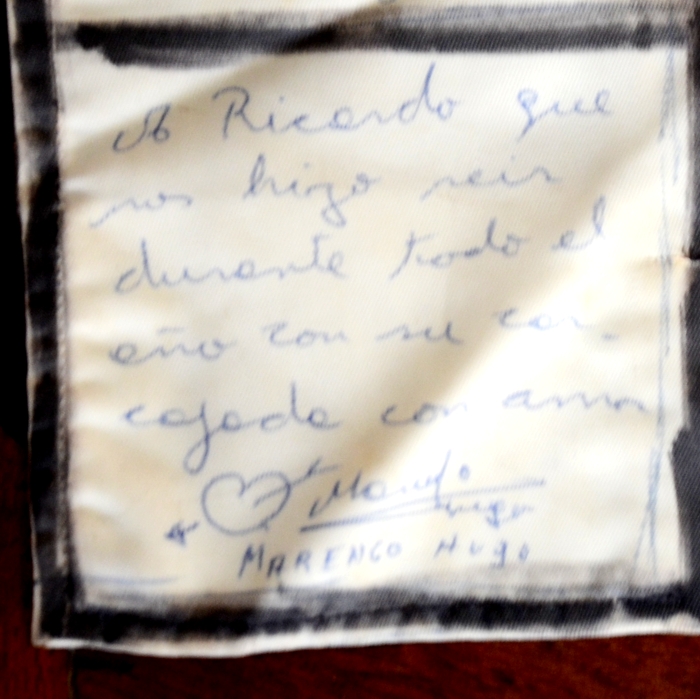 A Ricardo que
nos hizo reir
durante todo el
año con su car-
cajada con amor
Marengo
Hugo
MARENGO HUGO